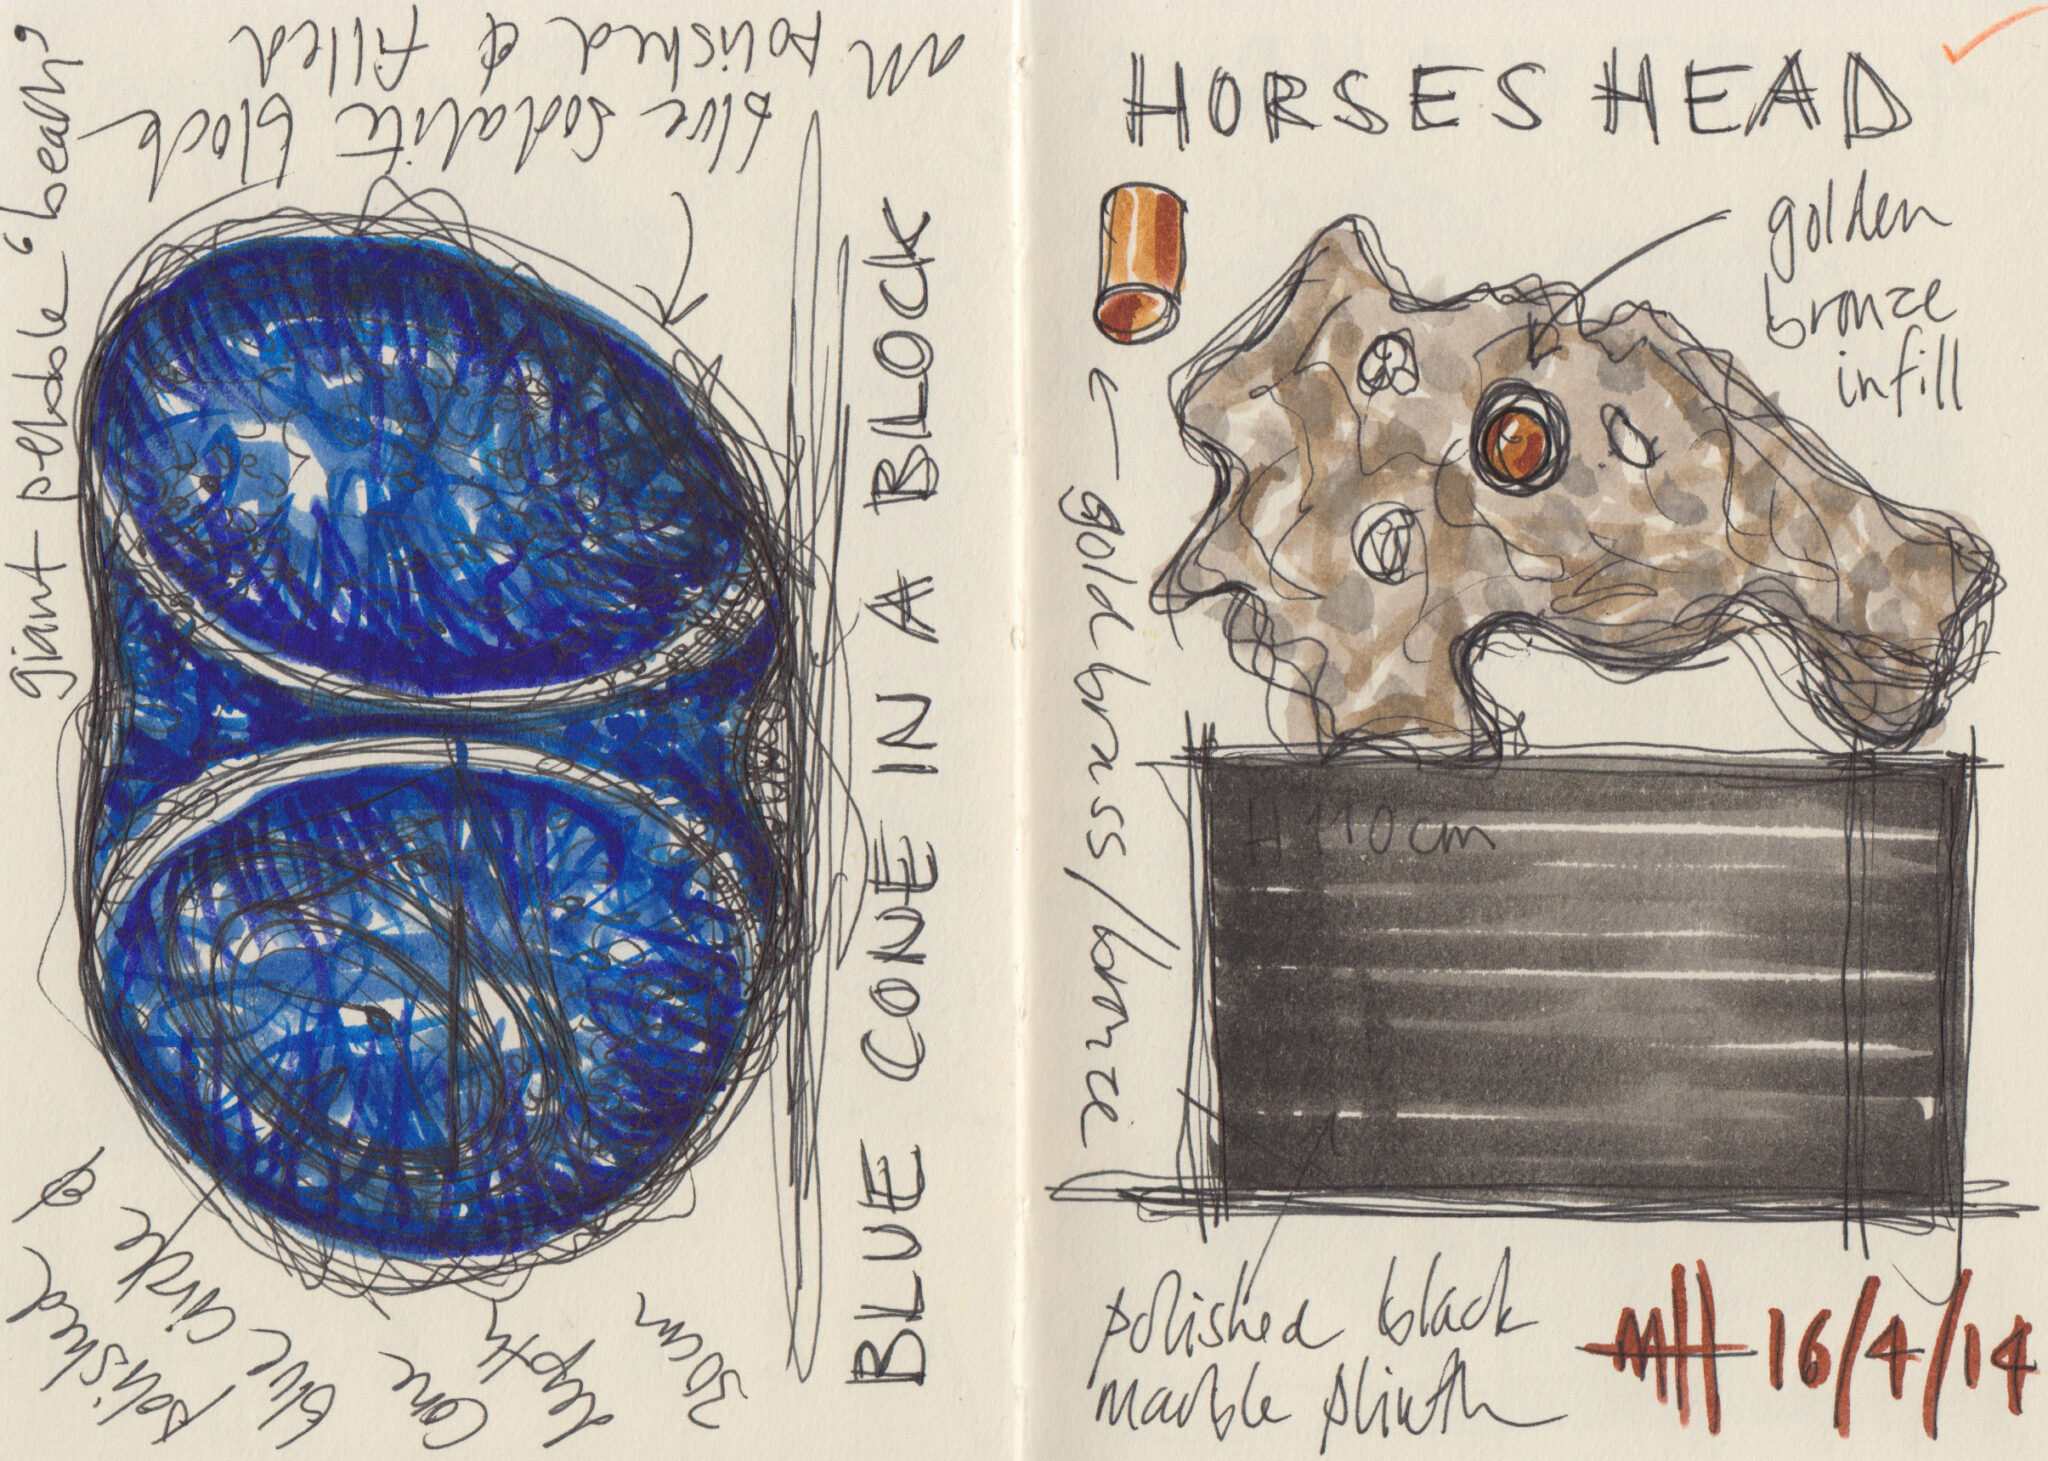 giant pebble "beany"
all
polished &
filled
blue sodalite block
BLUE CONE IN A BLOCK
polished
blue circle &
cone
depth
30cm
HORSES HEAD
golden
bronze
infill
gold brass/bronze
H 110cm
polished black
marble plinth
MH 16/4/14